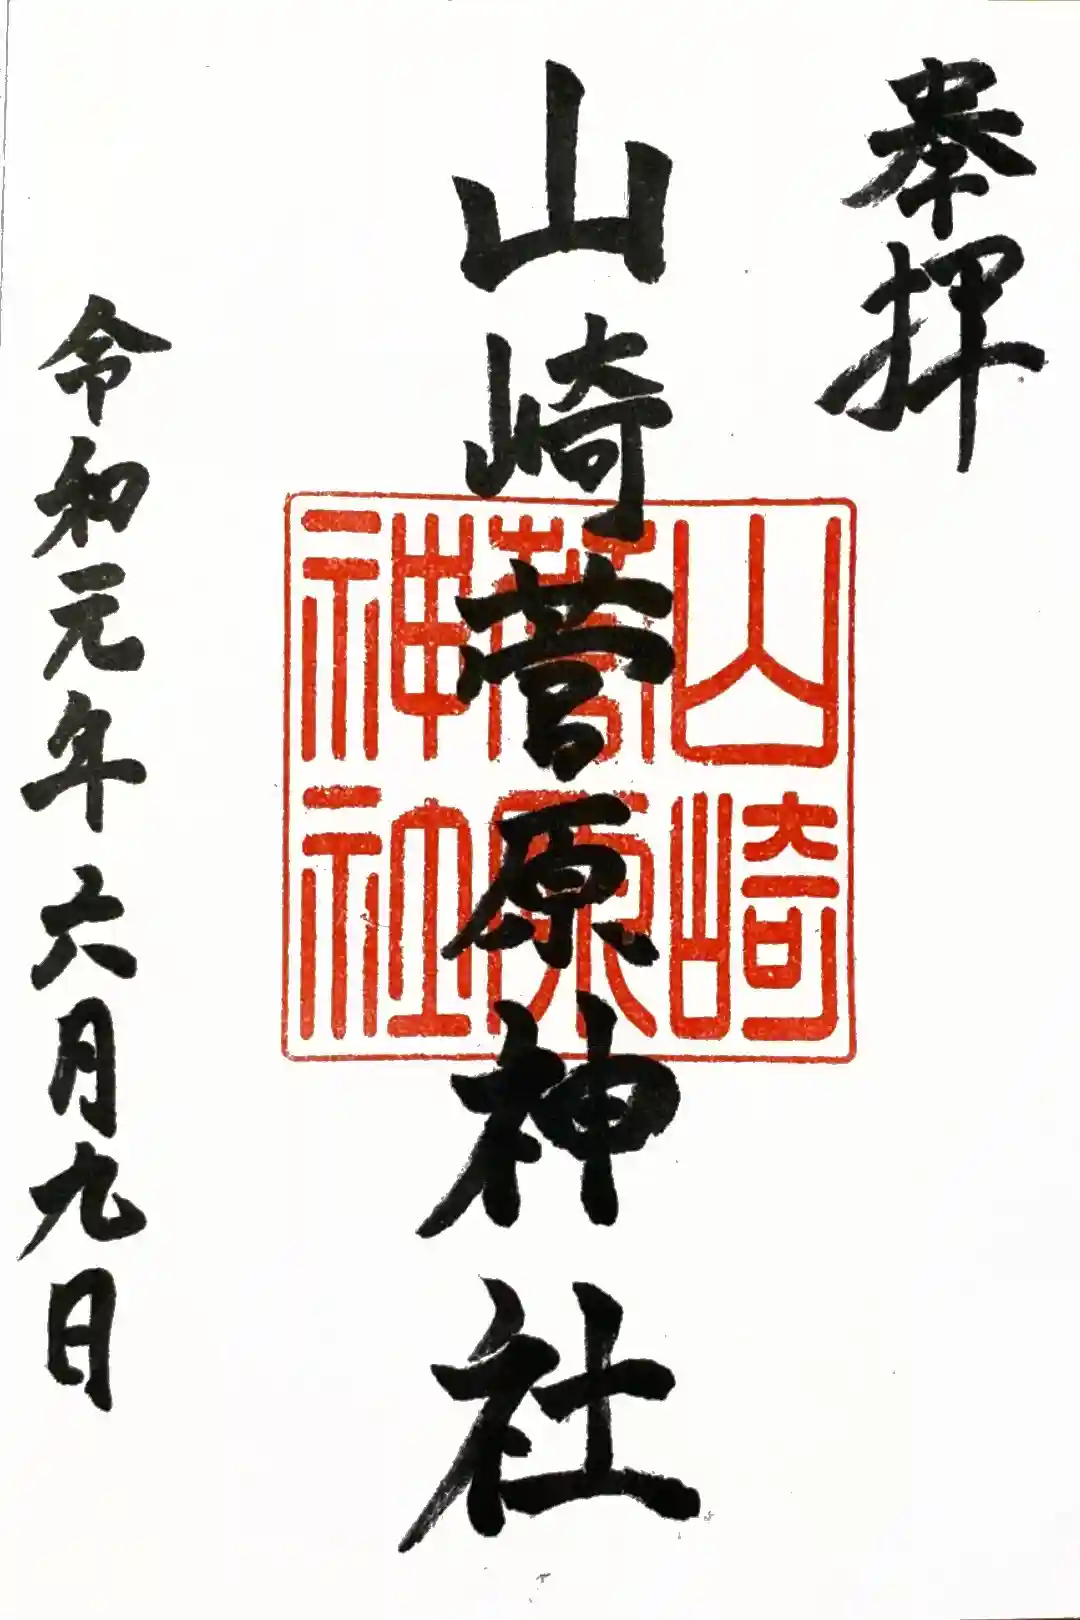 奉拝
山崎菅原神社
山崎
菅原
神社
令和元年六月九日